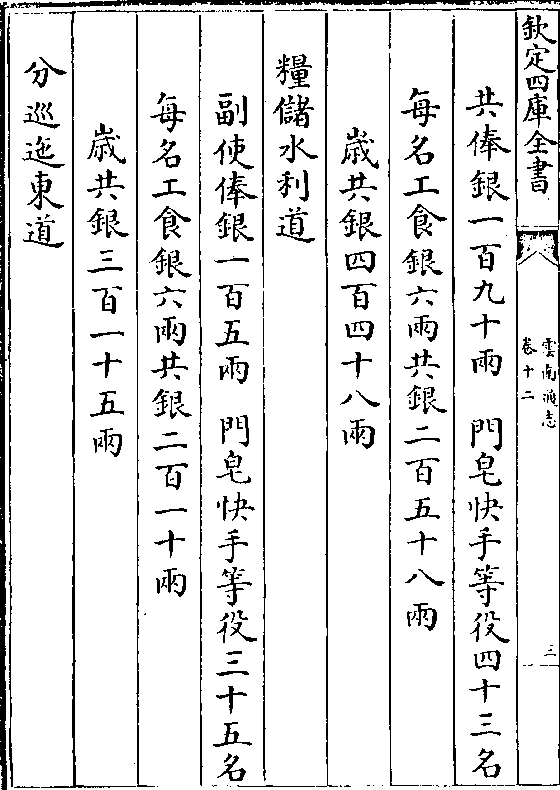 欽定四庫全書
雲南通志
卷十二
三
共俸銀一百九十兩　門皂快手等役四十三名
每名工食銀六兩共銀二百五十八兩
歲共銀四百四十八兩
糧儲水利道
副使俸銀一百五兩　門皂快手等役三十五名
每名工食銀六兩共銀二百一十兩
歲共銀三百一十五兩
分巡迤東道